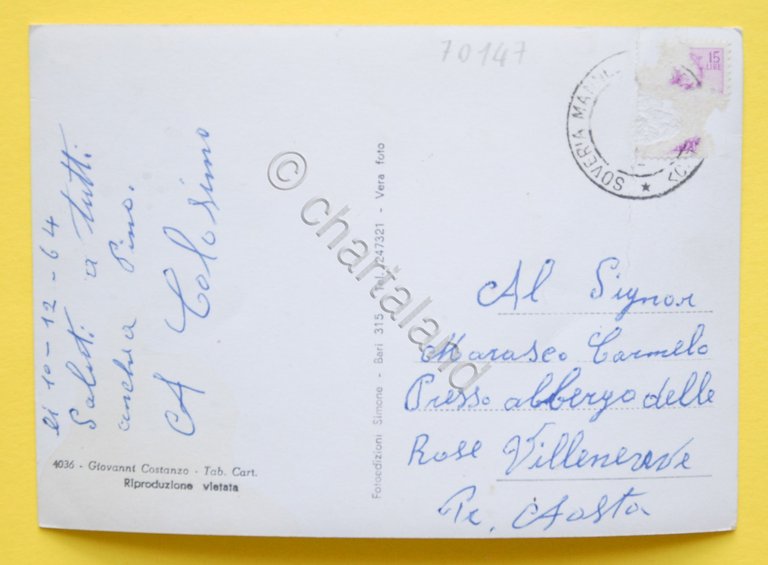 70147
15
LIRE
SOVERIA MANN
li 10-12-64
Saluti a tutti
anche a Pino.
A Colosimo
4036 - Giovanni Costanzo - Tab. Cart.
Riproduzione vietata
Fotoedizioni Simone - Bari 315 - Tel. 247321 - Vera foto
© chartaland
Al Signor
Marasco Carmelo
Presso abbergo delle
Rose Villeneve
Pr. Aosta